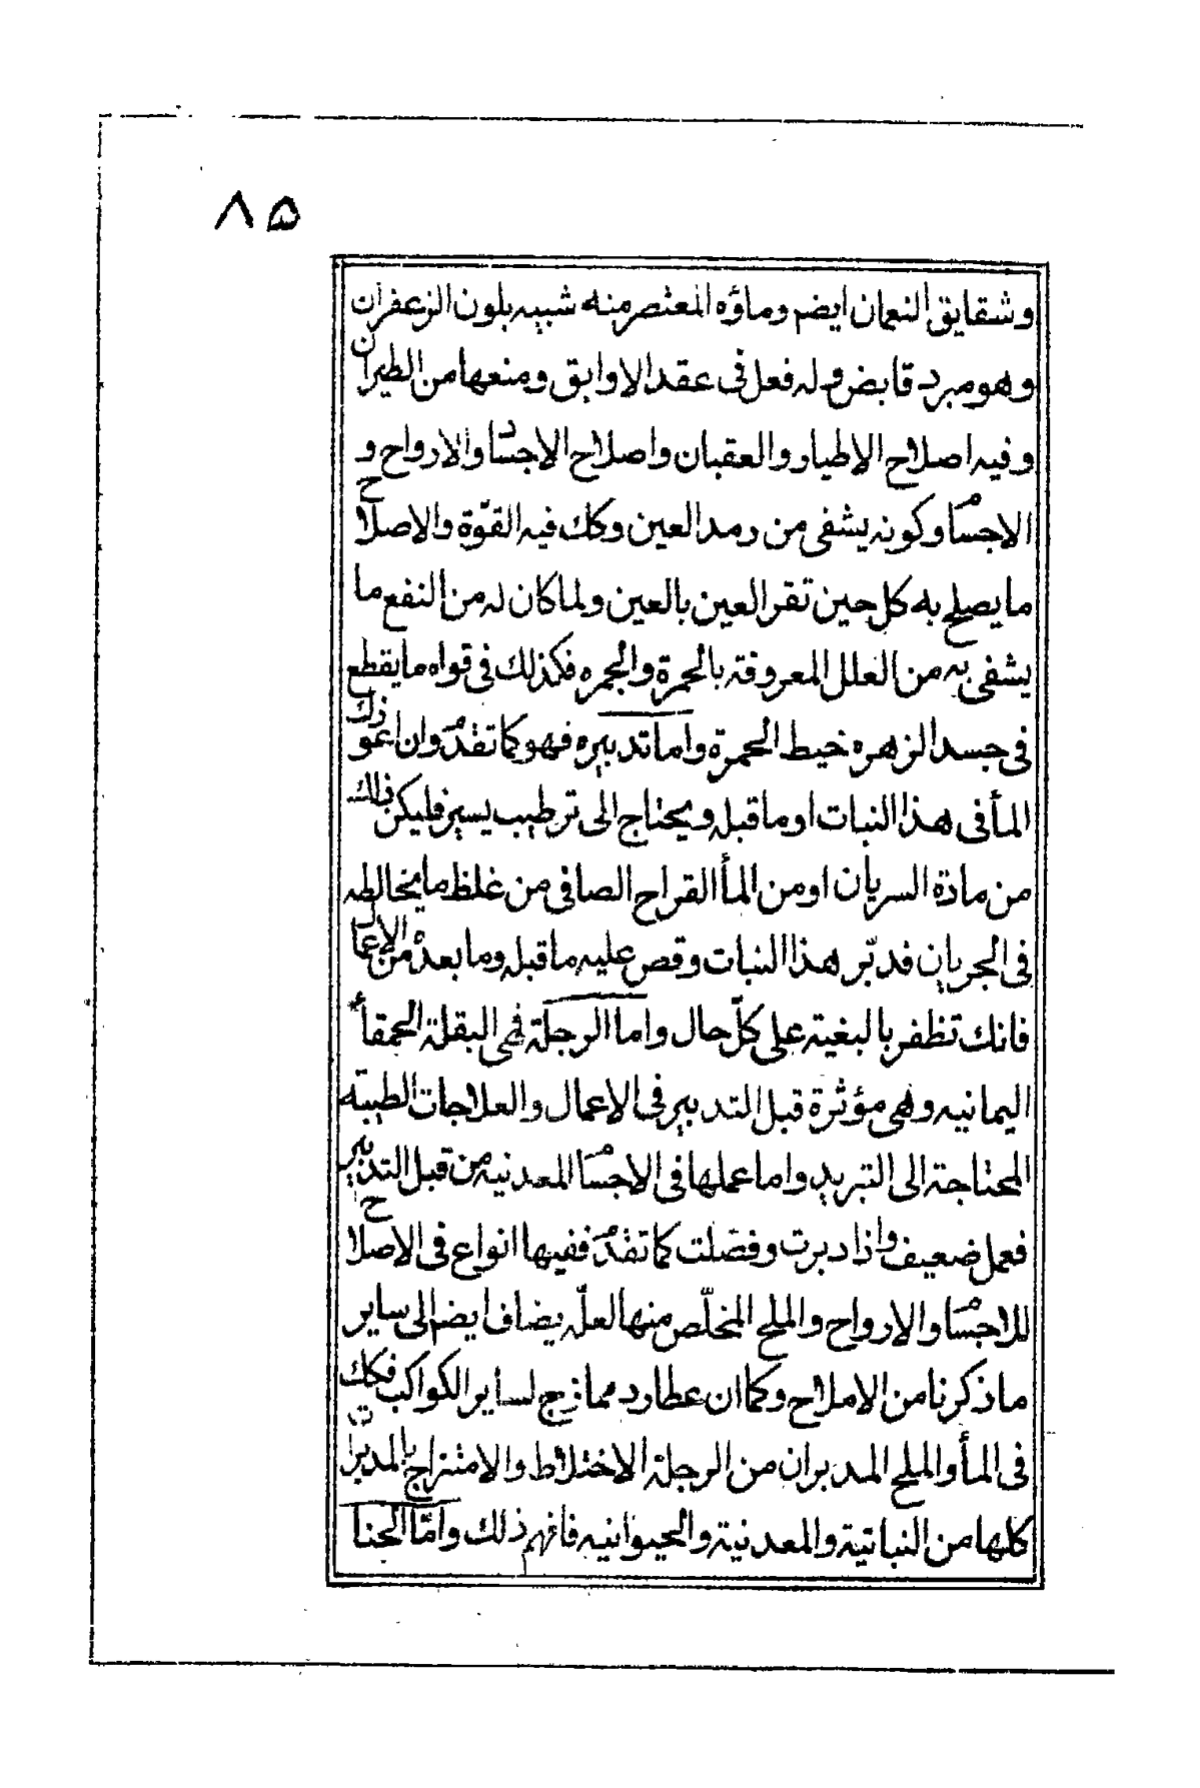 ٨٥
وشقايق النعمان ايضم وماؤه المعتصر منه شبيه بلون الزعفران
وهو مبرد قابض وله فعل فى عقد الاوابق ومنعها من الطيران
وفيه اصلاح الاطيار والعقبان واصلاح الاجساد والارواح و
الاجسام وكونه يشفى من رمد العين وكك فيه القوّة والاصلاح
ما يصلح به كل حين تقر العين بالعين ولما كان له من النفع ما
يشفى به من العلل المعروفة بالحمرة والجمره فكذلك فى قواه ما يقطع
فى جسد الزهره خيط الحمرة واما تدبيره فهو كما تقدم وان اعوذك
المأ فى هذا النبات او ما قبله ويحتاج الى ترطيب يسير فليكن ذلك
من مادة السريان او من المأ القراح الصافى من غلظ ما يخالطه
فى الجريان فدبّر هذا النبات وقص عليه ما قبله وما بعده من الاعمال
فانك تظفر بالبغية على كلّ حال واما الرجلة فهى البقلة الحمقأ
اليمانيه وهى مؤثرة قبل التدبير فى الاعمال والعلاجات الطبيّه
المحتاجة الى التبريد واما عملها فى الاجسام المعدنيه من قبل التدبير
فعمل ضعيف واذا دبرت وفصّلت كما تقدم ففيها انواع فى الاصلاح
للاجسام والارواح والملح المخلّص منها لعلّه يضاف ايضم الى ساير
ما ذكرنا من الاملاح وكما ان عطارد ممازج لساير الكواكب فكك
فى المأ والملح المدبران من الرجلة الاختلاط والامتزاج بالمدبرات
كلها من النباتية والمعدنية والحيوانيه فافهم ذلك وامّا الحنا